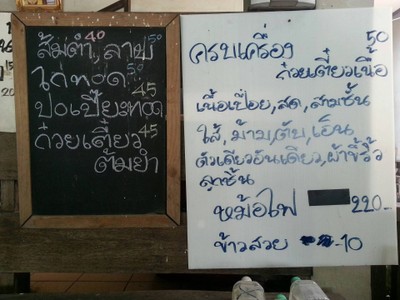 ส้มตำ 40 , ลาบ 50
ไก่ทอด 50
ปอเปี๊ยะทอด 45
ก๋วยเตี๋ยว 45
ต้มยำ
ครบเครื่อง 50
ก๋วยเตี๋ยวเนื้อ
เนื้อเปื่อย, สด, สามชั้น
ไส้, ม้าม, ตับ, เอ็น
ตัวเดียวอันเดียว, ผ้าขี้ริ้ว
ลูกชิ้น
หม้อไฟ 220.-
ข้าวสวย -10